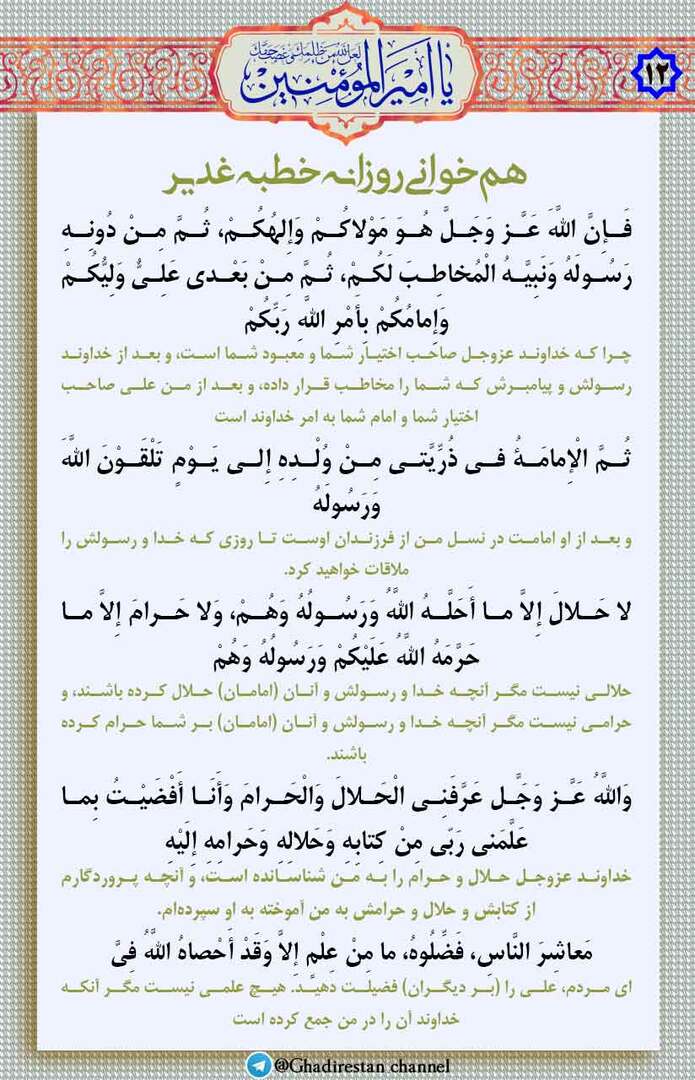 ۱۲
لعن الله من ظلمك و غصب حقك
یا امیرالمؤمنین
هم‌خوانی روزانه خطبه غدیر
فَإِنَّ اللَّهَ عَزَّ وَجَلَّ هُوَ مَوْلاکُمْ وَإِلهُکُمْ، ثُمَّ مِنْ دُونِهِ
رَسُولُهُ وَنَبِیُّهُ الْمُخاطِبَ لَکُمْ، ثُمَّ مِنْ بَعْدی عَلِیٌّ وَلِیُّکُمْ
وَإِمامُکُمْ بِأَمْرِ اللَّهِ رَبِّکُمْ
چرا که خداوند عزوجل صاحب اختیار شما و معبود شما است، و بعد از خداوند
رسولش و پیامبرش که شما را مخاطب قرار داده، و بعد از من علی صاحب
اختیار شما و امام شما به امر خداوند است
ثُمَّ الْإِمامَهُ فی ذُرِّیَّتی مِنْ وُلْدِهِ إِلی یَوْمٍ تَلْقَوْنَ اللَّهَ
وَرَسُولَهُ
و بعد از او امامت در نسل من از فرزندان اوست تا روزی که خدا و رسولش را
ملاقات خواهید کرد.
لا حَلالَ إِلاَّ ما أَحَلَّهُ اللَّهُ وَرَسُولُهُ وَهُمْ، وَلا حَرامَ إِلاَّ ما
حَرَّمَهُ اللَّهُ عَلَیْکُمْ وَرَسُولُهُ وَهُمْ
حلالی نیست مگر آنچه خدا و رسولش و آنان (امامان) حلال کرده باشند، و
حرامی نیست مگر آنچه خدا و رسولش و آنان (امامان) بر شما حرام کرده
باشند.
وَاللَّهُ عَزَّ وَجَّل عَرَّفَنِی الْحَلالَ وَالْحَرامَ وَأَنَا أَفْضَیْتُ بِما
عَلَّمَنی رَبّی مِنْ کِتابِهِ وَحَلالِهِ وَحَرامِهِ إِلَیْهِ
خداوند عزوجل حلال و حرام را به من شناسانده است، و آنچه پروردگارم
از کتابش و حلال و حرامش به من آموخته به او سپرده‌ام.
مَعاشِرَ النَّاسِ، فَضِّلُوهُ، ما مِنْ عِلْمٍ إِلاَّ وَقَدْ أَحْصاهُ اللَّهُ فِیَّ
ای مردم، علی را (بر دیگران) فضیلت دهید. هیچ علمی نیست مگر آنکه
خداوند آن را در من جمع کرده است
@Ghadirestan channel